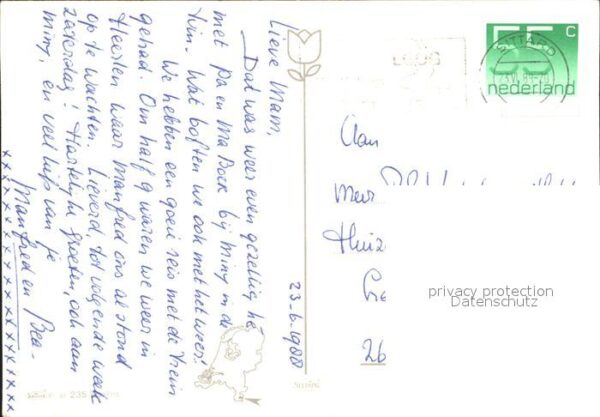 23-6-1988
Lieve Mam,
Dat was weer even gezellig hè
met Pa en Ma Bock bij Miny in de
tuin. Wat boften we ook met het weer!
We hebben een goeie reis met de trein
gehad. Om half 9 waren we weer in
Heerlen waar Manfred ons al stond
op te wachten. Lieverd, tot volgende week
zaterdag! Hartelijke groeten, ook aan
Miny, en veel liefs van je
Manfred en Bea-
xxxxxxxxxxxxxxxxxxx
55 c
nederland
Aan
Mevr
Huize
26
privacy protection
Datenschutz
235